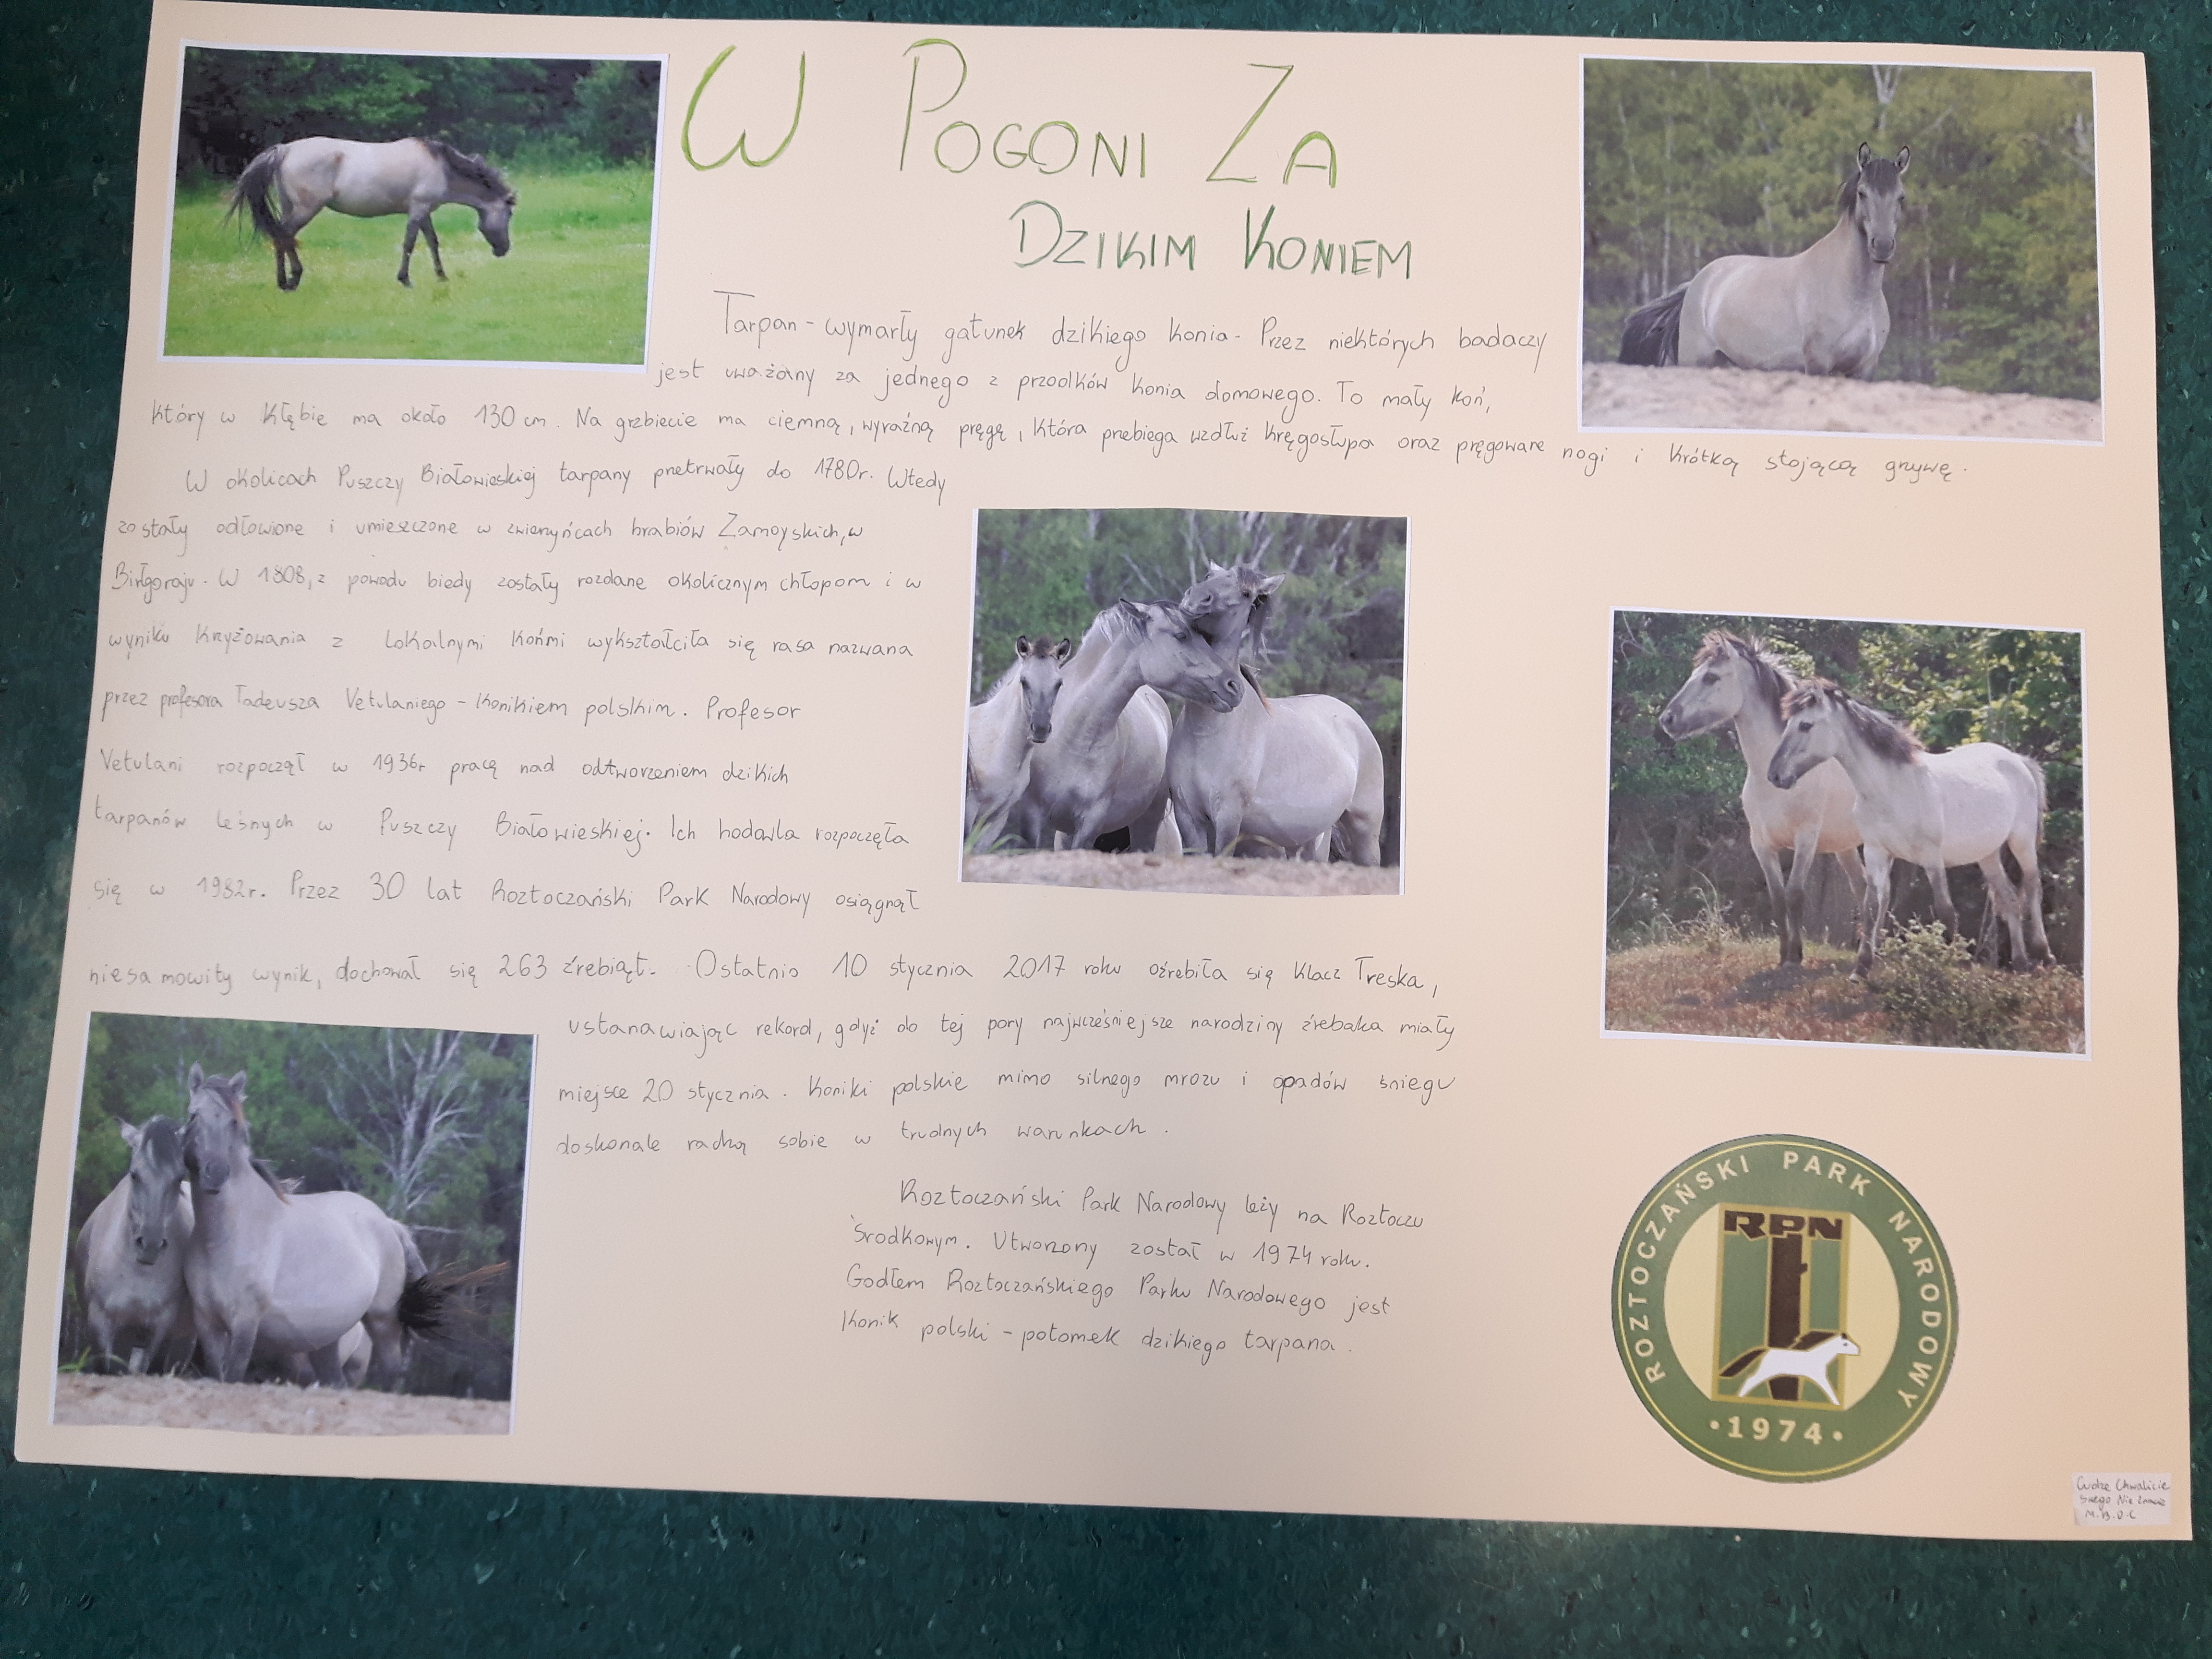 W POGONI ZA
DZIKIM KONIEM
Tarpan - wymarły gatunek dzikiego konia. Przez niektórych badaczy
jest uważany za jednego z przodków konia domowego. To mały koń,
który w kłębie ma około 130 cm. Na grzbiecie ma ciemną, wyraźną pręgę, która przebiega wzdłuż kręgosłupa oraz pręgowane nogi i krótką stojącą grzywę.
W okolicach Puszczy Białowieskiej tarpany przetrwały do 1780r. Wtedy
zostały odłowione i umieszczone w zwierzyńcach hrabiów Zamoyskich, w
Biłgoraju. W 1808, z powodu biedy zostały rozdane okolicznym chłopom i w
wyniku krzyżowania z lokalnymi końmi wykształciła się rasa nazwana
przez profesora Tadeusza Vetulaniego - konikiem polskim. Profesor
Vetulani rozpoczął w 1936r pracę nad odtworzeniem dzikich
tarpanów leśnych w Puszczy Białowieskiej. Ich hodowla rozpoczęła
się w 1982r. Przez 30 lat Roztoczański Park Narodowy osiągnął
niesamowity wynik, dochował się 263 źrebiąt. Ostatnio 10 stycznia 2017 roku oźrebiła się klacz Treska,
ustanawiając rekord, gdyż do tej pory najwcześniejsze narodziny źrebaka miały
miejsce 20 stycznia. Koniki polskie mimo silnego mrozu i opadów śniegu
doskonale radzą sobie w trudnych warunkach.
Roztoczański Park Narodowy leży na Roztoczu
Środkowym. Utworzony został w 1974 roku.
Godłem Roztoczańskiego Parku Narodowego jest
konik polski - potomek dzikiego tarpana.
ROZTOCZAŃSKI PARK NARODOWY
RPN
• 1974 •
Cudze Chwalicie
Swego Nie Znacie
M.B.O.C